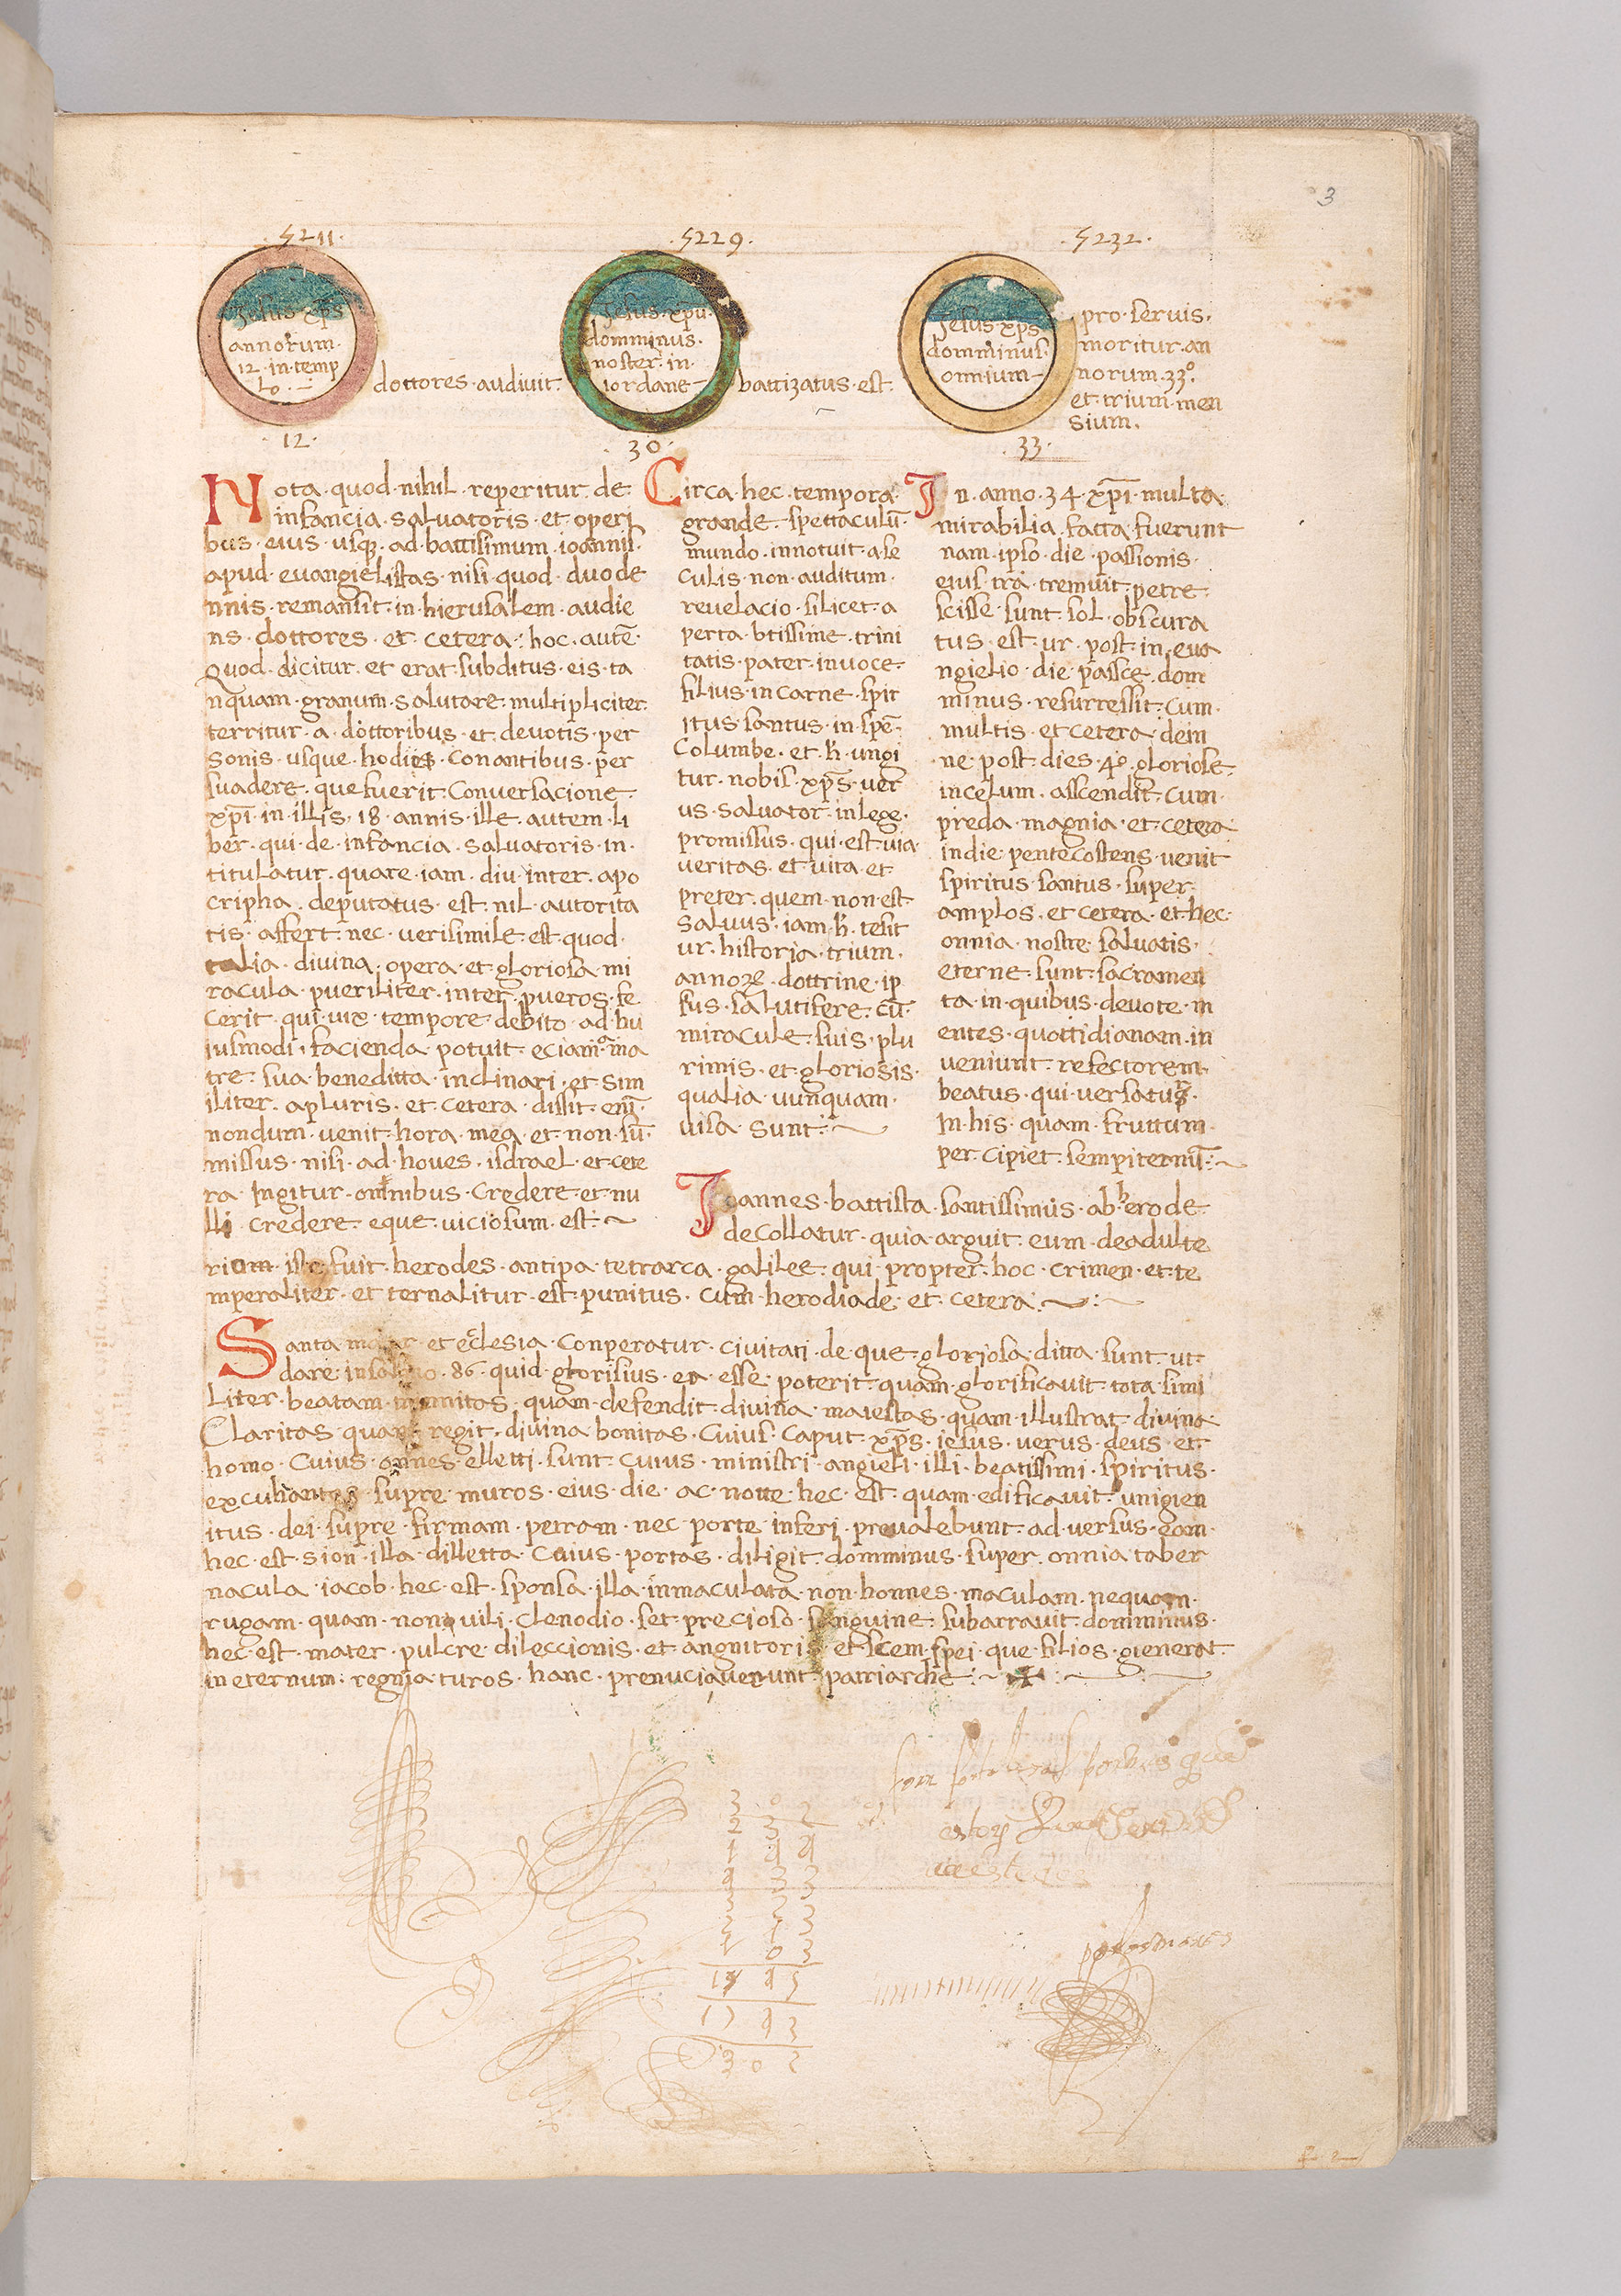 3
·5211·
·5229·
·5232·
Jesus xp̄s
annorum·
12·in·temp
lo·
dottores·audivit·
Jesus·xp̄u·
domminus·
noster·in·
iordane
battizatus·est·
Jesus·xp̄s
domminus·
omnium
pro·servis·
moritur·an
norum·33°·
et·trium·men
sium·
·12·
·30·
·33·
Nota·quod·nihil·reperitur·de·
infancia·salvatoris·et·operi
bus·eius·usq₃·ad·battisimum·ioannis·
apud·euangielistas·nisi·quod·duode
nnis·remansit·in·hierusalem·audie
ns·dottores·et·cetera·hoc·autē·
Quod·dicitur·et·erat·subditus·eis·ta
nquam·granum·salutare·multipliciter·
territur·a·dottoribus·et·devotis·per
sonis·usque·hodie·conantibus·per
suadere·que fuerit·conversacione·
xp̄i·in·illis·18·annis·ille·autem·li
ber·qui·de·infancia·salvatoris·in·
titulatur·quare·iam·diu·inter·apo
cripha·deputatus·est·nil·autorita
tis·affert·nec·verisimile·est·quod·
talia·divina·opera·et·gloriosa·mi
racula·pueriliter·inter·pueros·fe
cerit·qui·vix·tempore·debito·ad·hu
iusmodi·facienda·potuit·eciam·a·ma
tre·sua·beneditta·inclinari·et·sim
iliter·apluris·et·cetera·dissit·enī·
nondum·venit·hora·mea·et·non·sū·
missus·nisi·ad·hoves·isdrael·et·cete
ra·Ingitur·omnibus·credere·et·nu
lli·credere·eque·viciosum·est·
Circa·hec·tempora·
grande·spettaculū·
mundo·innotuit·ase
culis·non·auditum·
revelacio·silicet·a
perta·btissime·trini
tatis·pater·invoce·
filius·in carne·spir
itus·santus·in·spē·
columbe·et·h̄·ungi
tur·nobis·xp̄s·ver
us·salvator·inlege·
promissus·qui·est·via·
veritas·et·vita·et·
preter·quem·non·est·
salvus·iam·h̄·tesit
ur·historia·trium·
annoꝝ·dottrine·ip
sus·salutifere·cū·
miracule·suis·plu
rimis·et·gloriosis·
qualia·nunquam·
visa·sunt·
In·anno·34·xp̄i·multa·
mirabilia·fatta·fuerunt
nam·ipso·die·passionis·
eius·trā·tremuit·petre·
scisse·sunt·sol·obscura
tus·est·ur·post·in·eua
ngielio·die·passce·dom
minus·resurressit·cum·
multis·et cetera·dein
ne·post·dies·40·gloriose·
incelum·asscendit·cum·
preda·magnia·et·cetera
indie·pentecostens·venit
spiritus·santus·super·
amplos·et cetera·et·hec·
onnia·nostre·salvatis·
eterne·sunt·sacramen
ta·in·quibus·devote·m
entes·quottidianam·in
veniunt·refectorem·
beatus·qui·versatur·
In·his·quam·fruttum·
per·cipiet·sempiternū·
Joannes·battista·santissimus·ab·herode·
decollatur·quia·arguit·eum·deadulte
riom·iste·fuit·herodes·antipa·tetrarca·galilee·qui·propter·hoc·crimen·et·te
mperaliter·et ternalitur·est·punitus·cum·herodiade·et·cetera·
Santa·mater·et·ecclesia·conperatur·civitati·de·que·gloriosa·ditta·sunt·ut·
dare·in salmo·86·quid·glorisius·ea·esse·poterit·quam·glorificavit·tota·simi
liter·beatam·quam·defendit·divina·maiestas·quam·illustrat·divina·
claritas·quam·regit·divina·bonitas·cuius·caput·xp̄s·iesus·verus·deus·et·
homo·cuius·omnes·elletti·sunt·cuius·ministri·angieli·illi·beatissimi·spiritus·
excubantes·supre·muros·eius·die·ac·notte·hec·est·quam·edificavit·unigien
itus·dei·supre·firmam·petram·nec·porte·inferi·prevalebunt·ad·versus·eam·
hec·est·sion·illa·dilletta·cuius·portas·diligit·domminus·super·onnia·taber
nacula·iacob·hec·est·sponsa·illa·inmaculata·non·honnes·maculam·nequam·
rugam·quam·non·vili·clenodio·set·precioso·sanguine·subarravit·domminus·
hec·est·mater·pulcre·dileccionis·et·angnitoris·et·scem·spei·que·filios·gienerat·
in eternum·regnia turos·hanc·prenuciaverunt·patriarche·
3 0 2